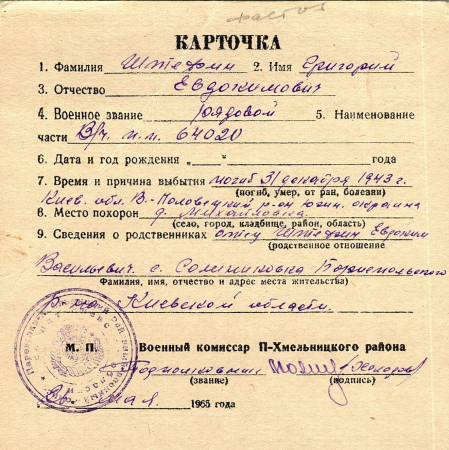 фастов
КАРТОЧКА
1. Фамилия Штефин 2. Имя Григорий
3. Отчество Евдокимович
4. Военное звание рядовой 5. Наименование
части В/ч. п.п. 64020
6. Дата и год рождения „ “ года
7. Время и причина выбытия погиб 31 декабря 1943 г.
(погиб, умер, от ран, болезни)
Киев. обл. В-Половецкий р-он южн. окраина
8. Место похорон д. Михайловка.
(село, город, кладбище, район, область)
9. Сведения о родственниках отец Штефин Евдоким
(родственное отношение
Васильевич с. Салиниковка Бориспольского
Фамилия, имя, отчество и адрес места жительства)
р-на Киевской области.
М. П. Военный комиссар П-Хмельницкого района
Подполковник
(звание) (подпись)
мая 1965 года